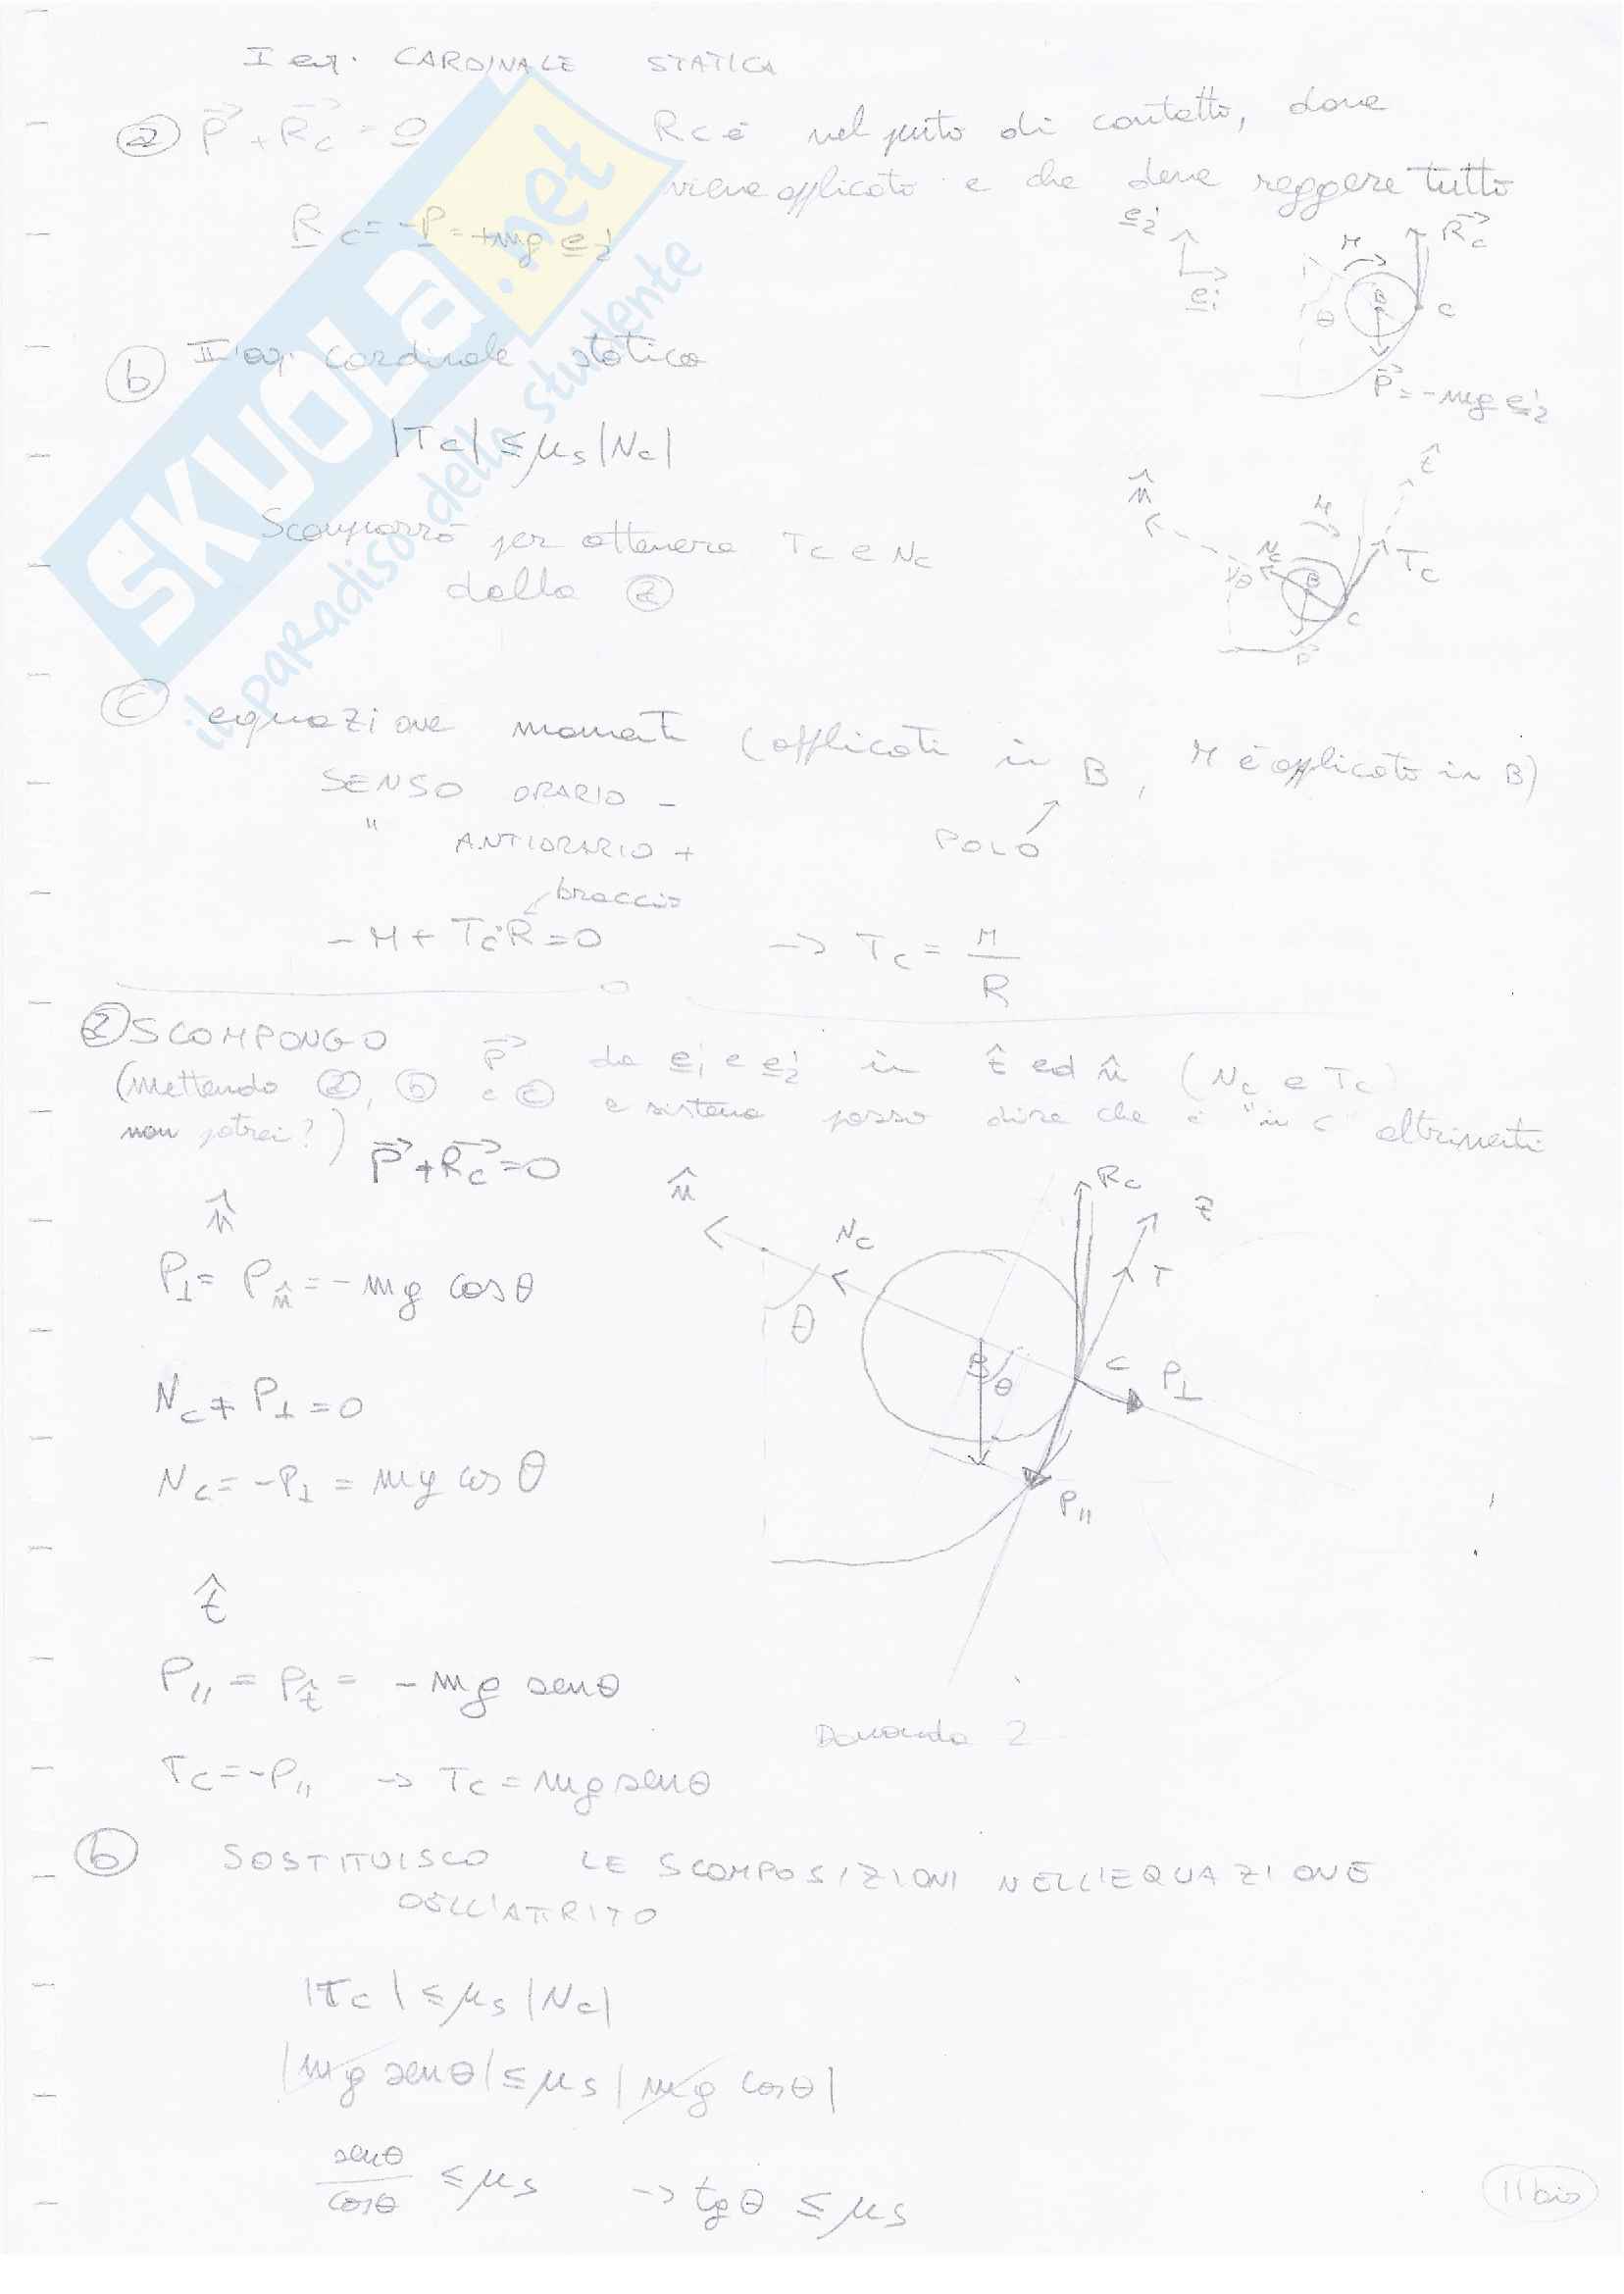 I eq. CARDINALE STATICA
ⓐ P⃗ + R⃗c = 0 Rc è nel punto di contatto, dove
viene applicato e che deve reggere tutto
R c = -P = +mg e2
e2 R⃗c
M
e1 θ B C
P⃗ = -mg e2
ⓑ II eq. cardinale statica
|Tc| ≤ μs |Nc|
Scomporrò per ottenere Tc e Nc
dalla ⓐ
n̂ t̂
M
Nc Tc
θ B C
P
ⓒ equazione momenti (applicati in B, M è applicato in B)
SENSO ORARIO -
" ANTIORARIO +
POLO
braccio
-M + Tc·R = 0 → Tc = M/R
ⓐ SCOMPONGO P⃗ da e1 e e2 in t̂ ed n̂ (Nc e Tc)
(mettendo ⓐ, ⓑ e ⓒ a sistema posso dire che è "in C" altrimenti
non potrei?) P⃗ + R⃗c = 0
n̂
P⊥ = Pn̂ = -mg cosθ
Nc + P⊥ = 0
Nc = -P⊥ = mg cos θ
n̂ Nc Rc t̂
T
θ
B θ C P⊥
P//
t̂
P// = Pt̂ = -mg senθ
Domanda 2
Tc = -P// → Tc = mg senθ
ⓑ SOSTITUISCO LE SCOMPOSIZIONI NELL'EQUAZIONE
DELL'ATTRITO
|Tc| ≤ μs |Nc|
|mg senθ| ≤ μs |mg cosθ|
senθ/cosθ ≤ μs → tgθ ≤ μs
11bis
SKUOLA.net
il paradiso dello studente